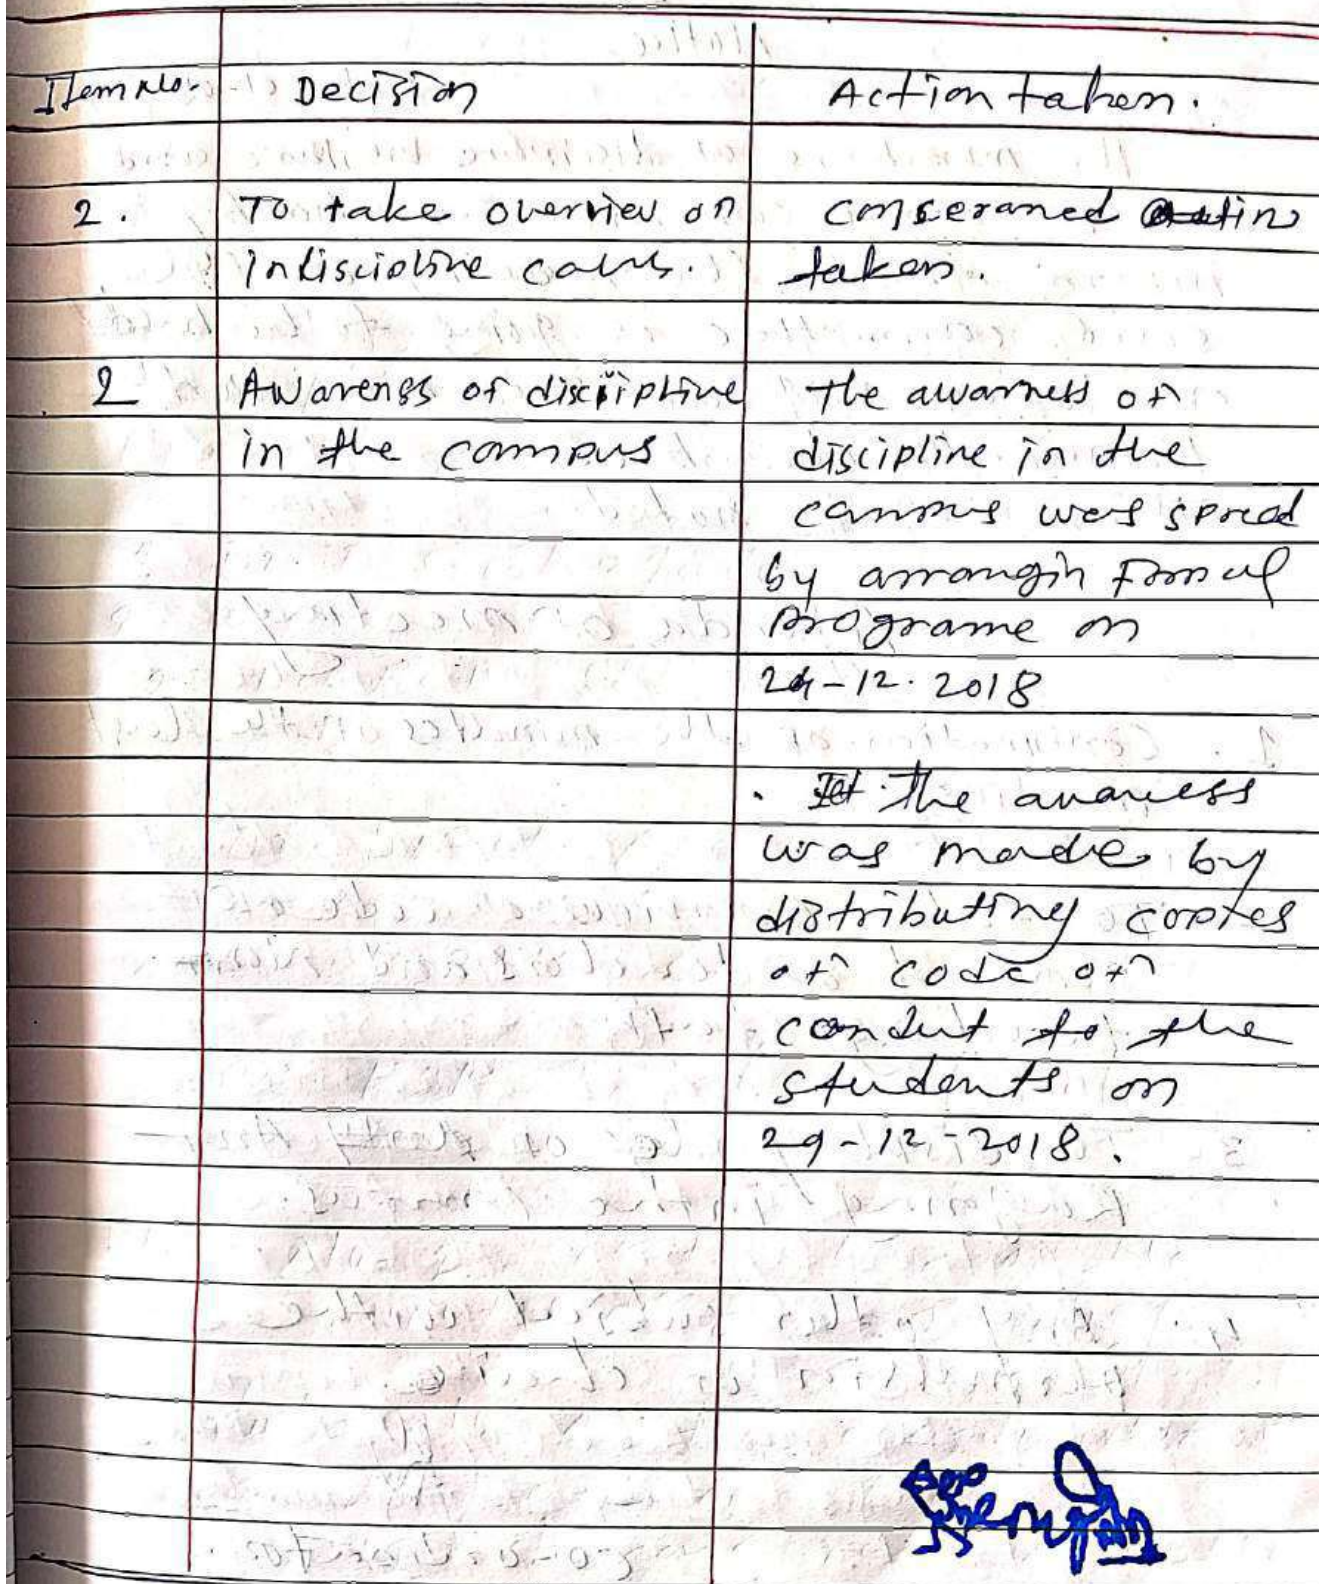 Item No. Decision Action taken.
2. To take overview on conseraned
indiscipline taken.
2 Awarenss of discipline The awarness of
in the campus discipline in the
campus was spread
by arrangin Formal
programe on
24-12.2018
. The awarness
was made by
distributing copies
of code of
condut to the
students on
29-12-2018.